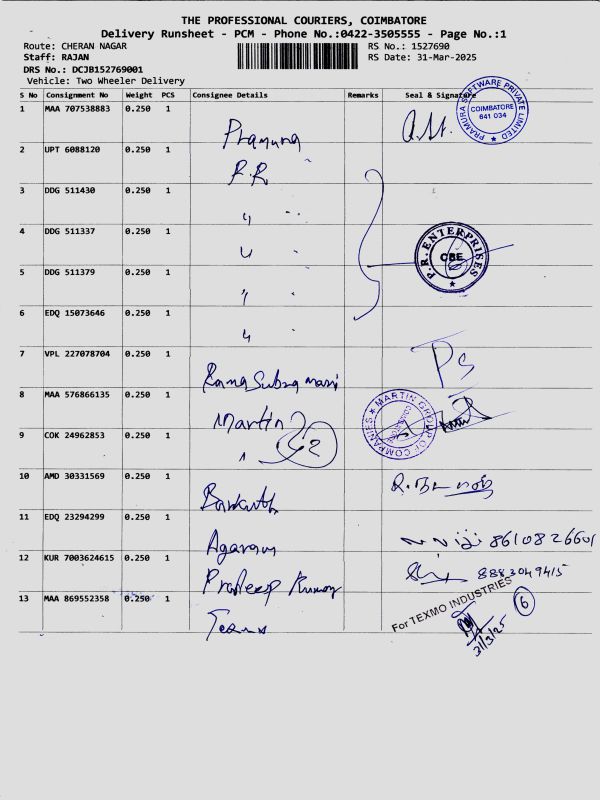 THE PROFESSIONAL COURIERS, COIMBATORE
Delivery Runsheet - PCM - Phone No.:0422-3505555 - Page No.:1
Route: CHERAN NAGAR
RS No.: 1527690
Staff: RAJAN
RS Date: 31-Mar-2025
DRS No.: DCJB152769001
Vehicle: Two Wheeler Delivery
S No Consignment No Weight PCS Consignee Details Remarks Seal & Signature
PRAMURA SOFTWARE PRIVATE LIMITED
COIMBATORE
641 034
1 MAA 707538883 0.250 1 Pramura
2 UPT 6088120 0.250 1 P.R
3 DDG 511430 0.250 1 〃
4 DDG 511337 0.250 1 〃
P.R. ENTERPRISES
CBE
5 DDG 511379 0.250 1 〃
6 EDQ 15073646 0.250 1 〃
7 VPL 227078704 0.250 1 Rama Subramani
8 MAA 576866135 0.250 1 Martin
MARTIN GROUP OF COMPANIES
9 COK 24962853 0.250 1
10 AMD 30331569 0.250 1
11 EDQ 23294299 0.250 1 Agaram 8610826601
12 KUR 7003624615 0.250 1 Pradeep Kumar 8883049415
13 MAA 869552358 0.250 1
For TEXMO INDUSTRIES
6
31/3/25